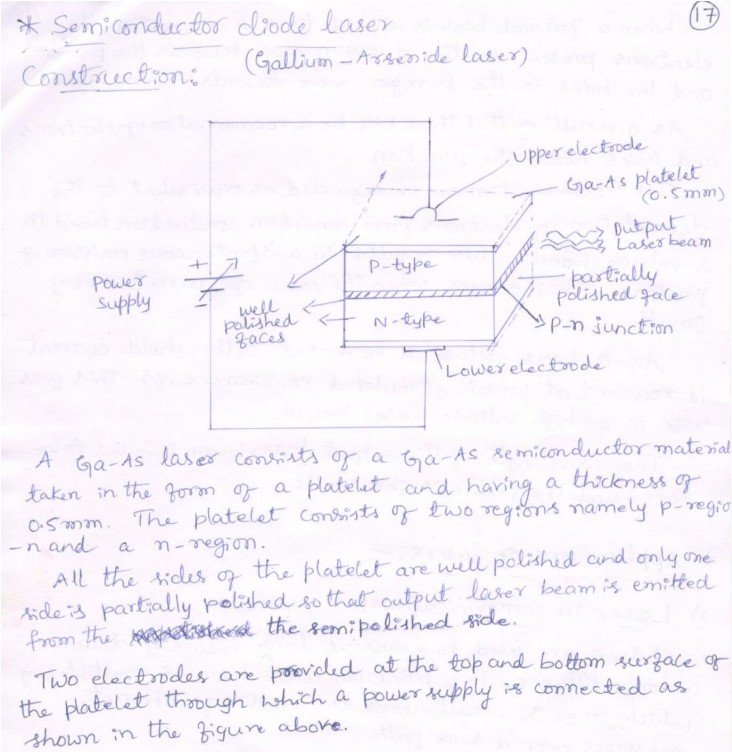 17
* Semiconductor diode laser
(Gallium-Arsenide laser)
Construction:
Upper electrode
Ga-As platelet
(0.5mm)
Output
Laser beam
P-type
+
-
Power
supply
well
polished
faces
partially
polished face
N-type
P-n junction
Lower electrode
A Ga-As laser consists of a Ga-As semiconductor material
taken in the form of a platelet and having a thickness of
0.5mm. The platelet consists of two regions namely p-regio
-n and a n-region.
All the sides of the platelet are well polished and only one
side is partially polished so that output laser beam is emitted
from the the semipolished side.
Two electrodes are provided at the top and bottom surface of
the platelet through which a power supply is connected as
shown in the figure above.